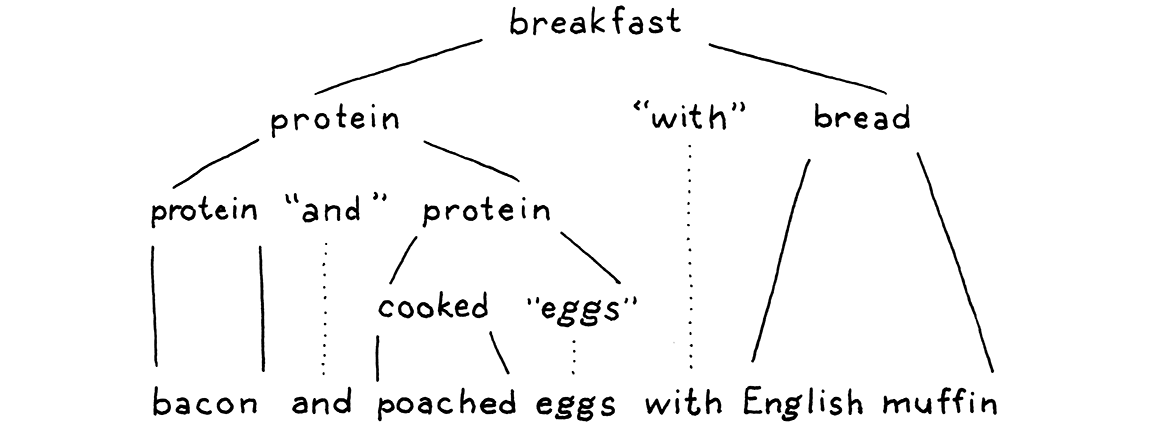 breakfast
protein “with” bread
protein “and” protein
cooked “eggs”
bacon and poached eggs with English muffin